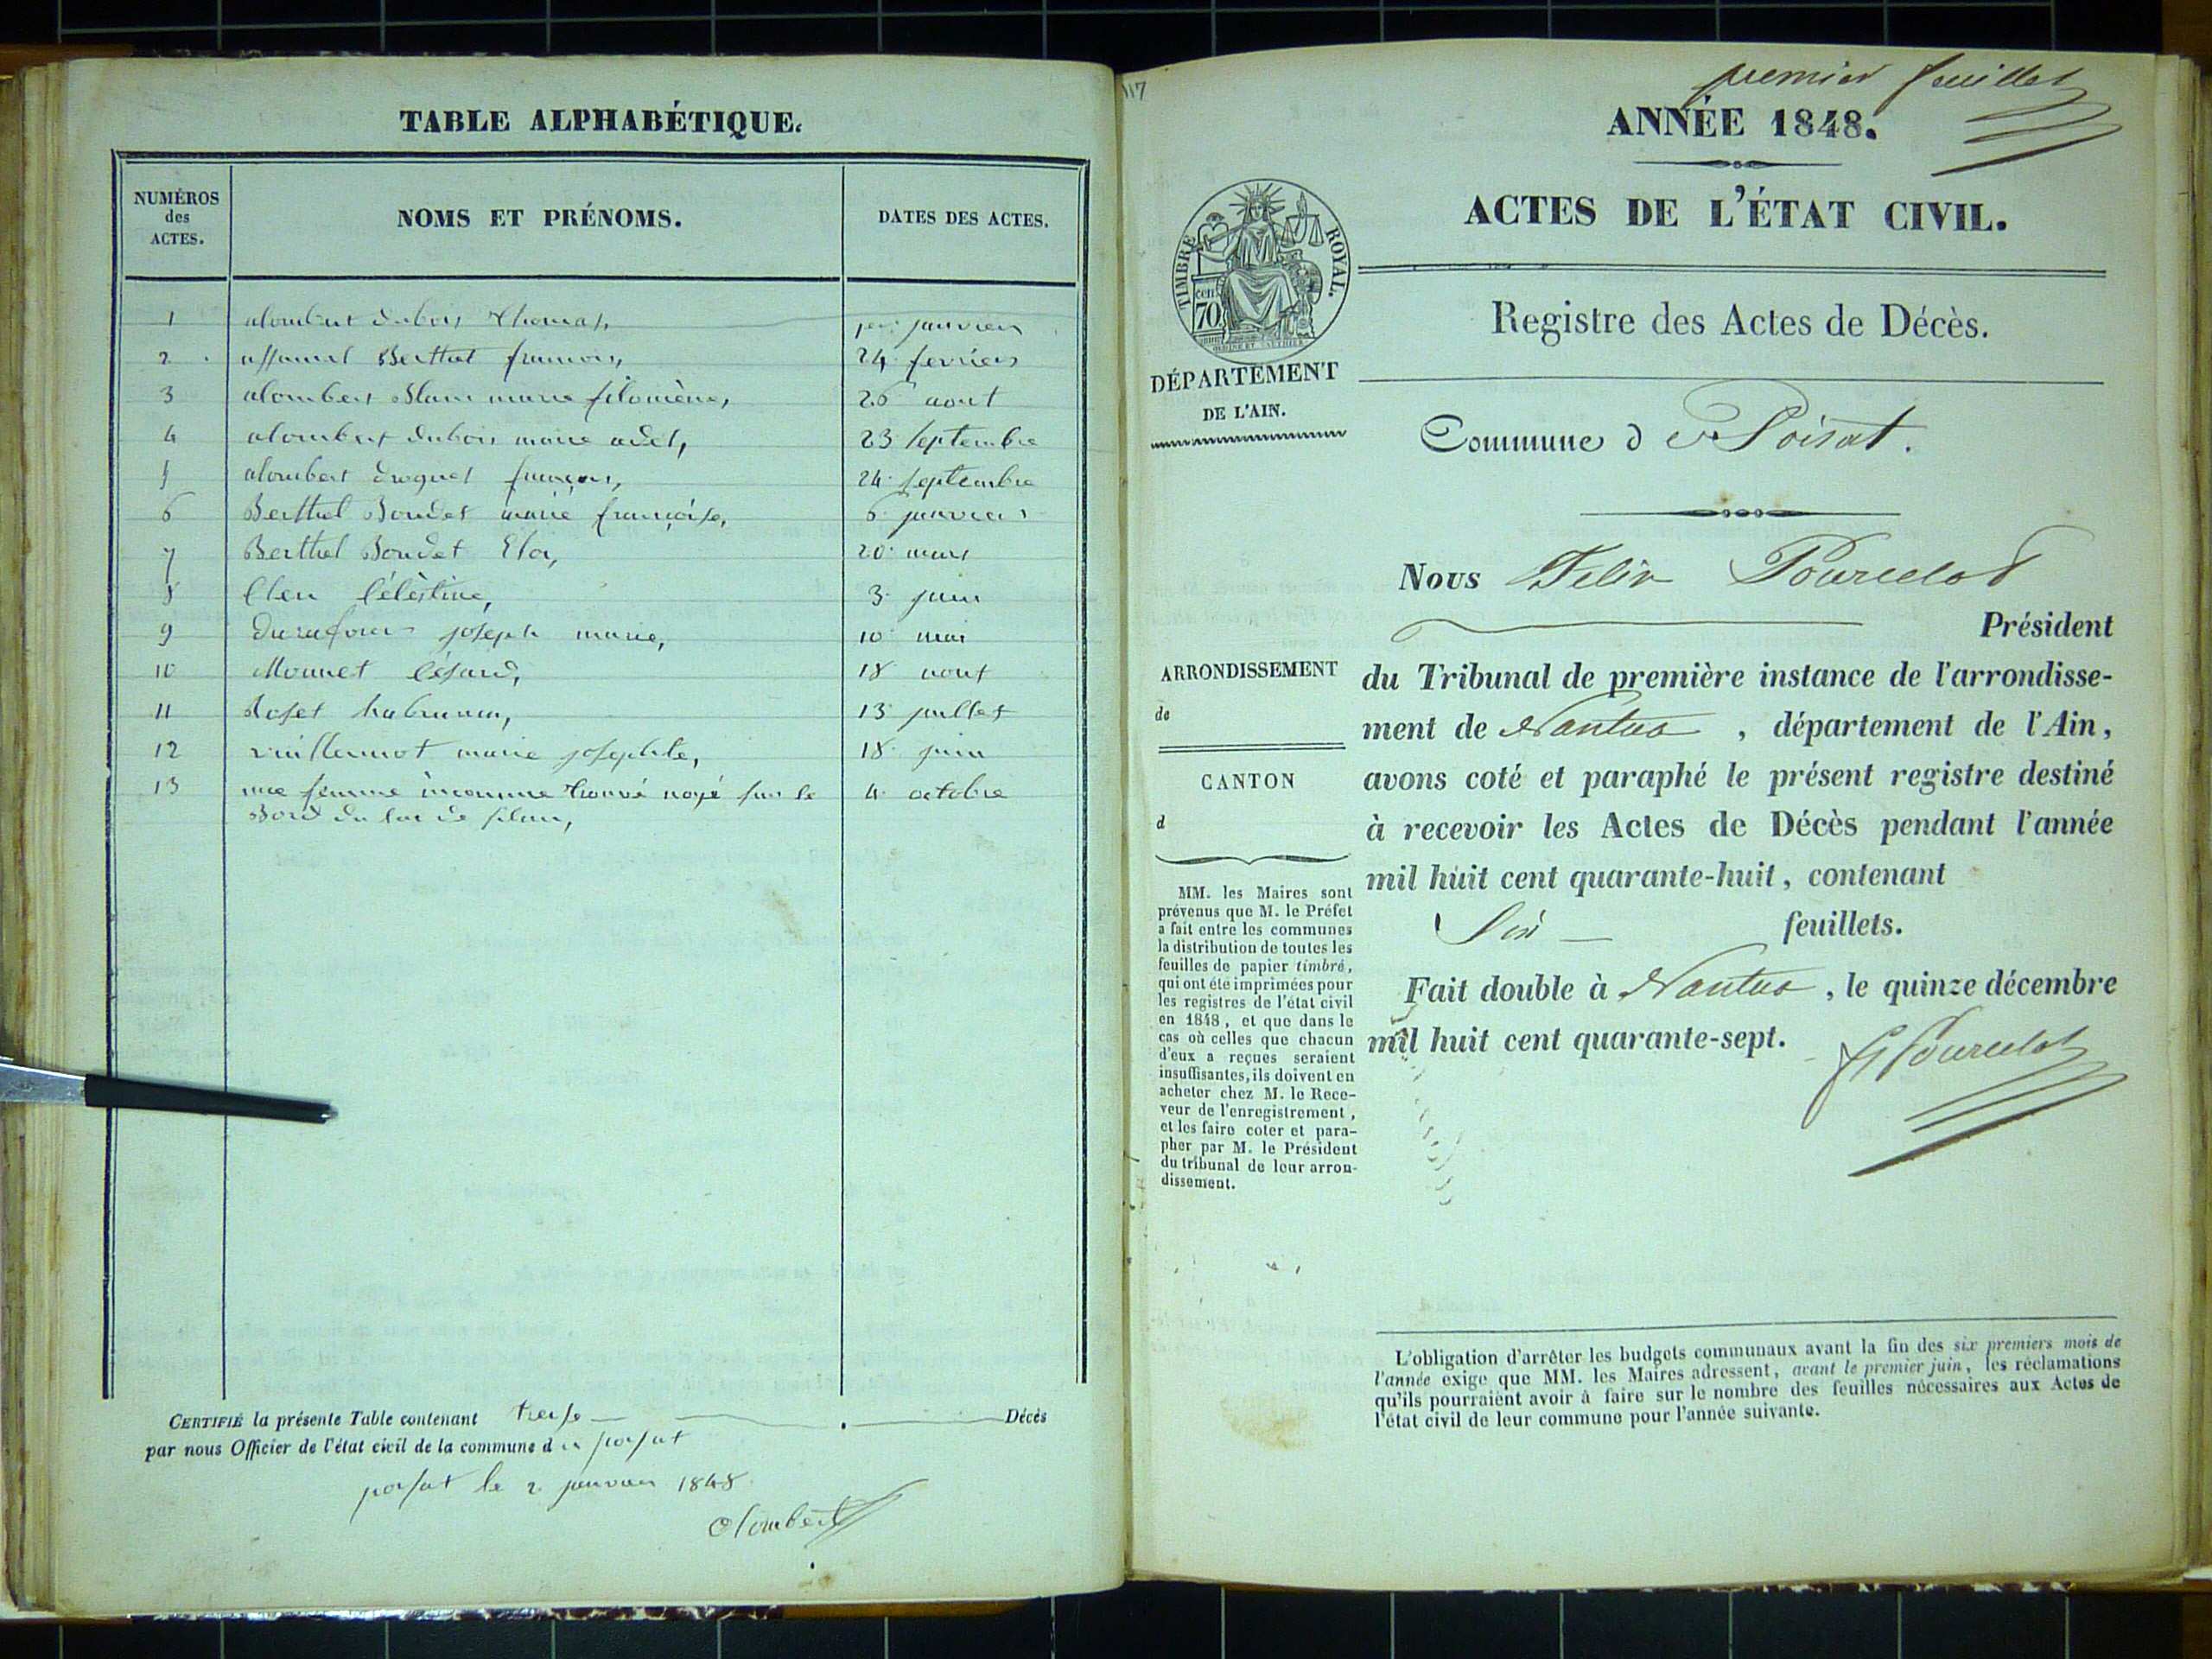 TABLE ALPHABÉTIQUE.
NUMÉROS
des
ACTES.
NOMS ET PRÉNOMS.
DATES DES ACTES.
1 alombert dubois thomas, 1er janvier
2 Berthet francois, 24 fevrier
3 alombert marie filomène, 26 aout
4 alombert dubois marie adel, 23 septembre
5 alombert françois, 24 septembre
6 Berthet Boudet marie françoise, 6 janvier
7 Berthet Boudet Eloi, 20 mars
8 Clen Célèstine, 3 juin
9 Durafour joseph marie, 10 mai
10 Monnet Césard, 18 aout
11 Roset 13 juillet
12 vuillermot marie josephte, 18 juin
13 une femme inconnue trouvé noyé sur le 4 octobre
Bord du lac de silan,
CERTIFIÉ la présente Table contenant treise Décès
par nous Officier de l'état civil de la commune de poisat
poisat le 2 janvier 1848
alombert
117
premier feuillet
ANNÉE 1848.
ACTES DE L'ÉTAT CIVIL.
TIMBRE ROYAL.
cen.
70
Registre des Actes de Décès.
DÉPARTEMENT
DE L'AIN.
Commune de Poisat.
Nous Félix Pourcelot
Président
du Tribunal de première instance de l'arrondisse-
ment de Nantua, département de l'Ain,
avons coté et paraphé le présent registre destiné
à recevoir les Actes de Décès pendant l'année
mil huit cent quarante-huit, contenant
Six feuillets.
Fait double à Nantua, le quinze décembre
mil huit cent quarante-sept.
Pourcelot
ARRONDISSEMENT
de
CANTON
d
MM. les Maires sont
prévenus que M. le Préfet
a fait entre les communes
la distribution de toutes les
feuilles de papier timbré,
qui ont été imprimées pour
les registres de l'état civil
en 1848, et que dans le
cas où celles que chacun
d'eux a reçues seraient
insuffisantes, ils doivent en
acheter chez M. le Rece-
veur de l'enregistrement,
et les faire coter et para-
pher par M. le Président
du tribunal de leur arron-
dissement.
L'obligation d'arrêter les budgets communaux avant la fin des six premiers mois de
l'année exige que MM. les Maires adressent, avant le premier juin, les réclamations
qu'ils pourraient avoir à faire sur le nombre des feuilles nécessaires aux Actes de
l'état civil de leur commune pour l'année suivante.